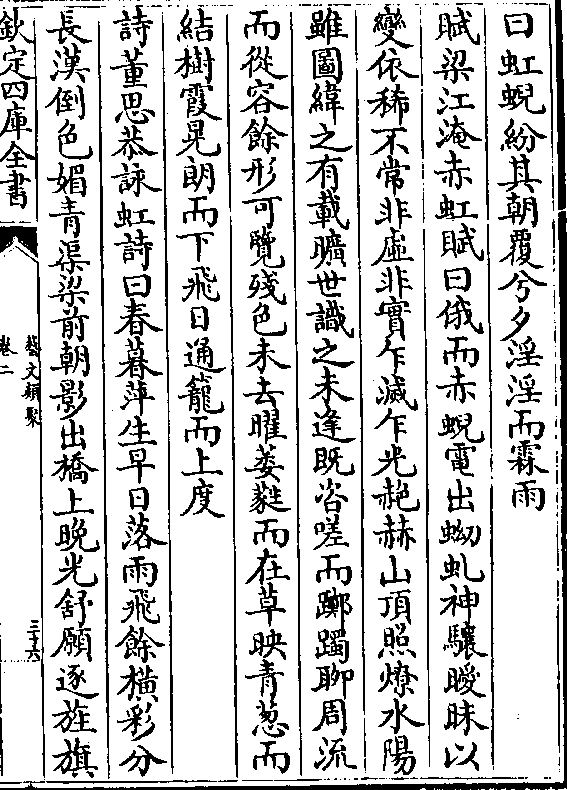 曰虹蜺紛其朝覆兮夕淫淫而霖雨
賦梁江淹赤虹賦曰俄而赤蜺電出蚴虬神驤曖昧以
變依稀不常非虛非實乍滅乍光赩赫山頂照燎水陽
雖圖緯之有載曠世識之未逢既咨嗟而躑躅聊周流
而從容餘形可覽殘色未去曜萎蕤而在草映青葱而
結樹霞晃朗而下飛日通籠而上度
詩董思恭詠虹詩曰春暮萍生早日落雨飛餘橫彩分
長漢倒色媚青渠梁前朝影出橋上晚光舒願逐旌旗
欽定四庫全書
藝文類聚
卷二
三十六